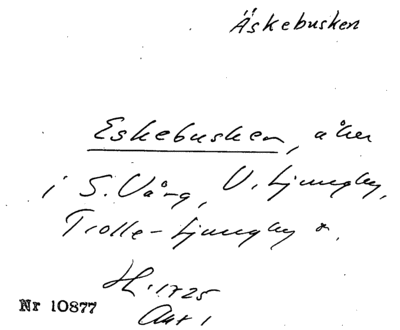 Äskebusken
Eskebusken, åker
i S. Vång, V. Ljungby,
Trolle-Ljungby s.
H. 1725
Akt 1
Nr 10877